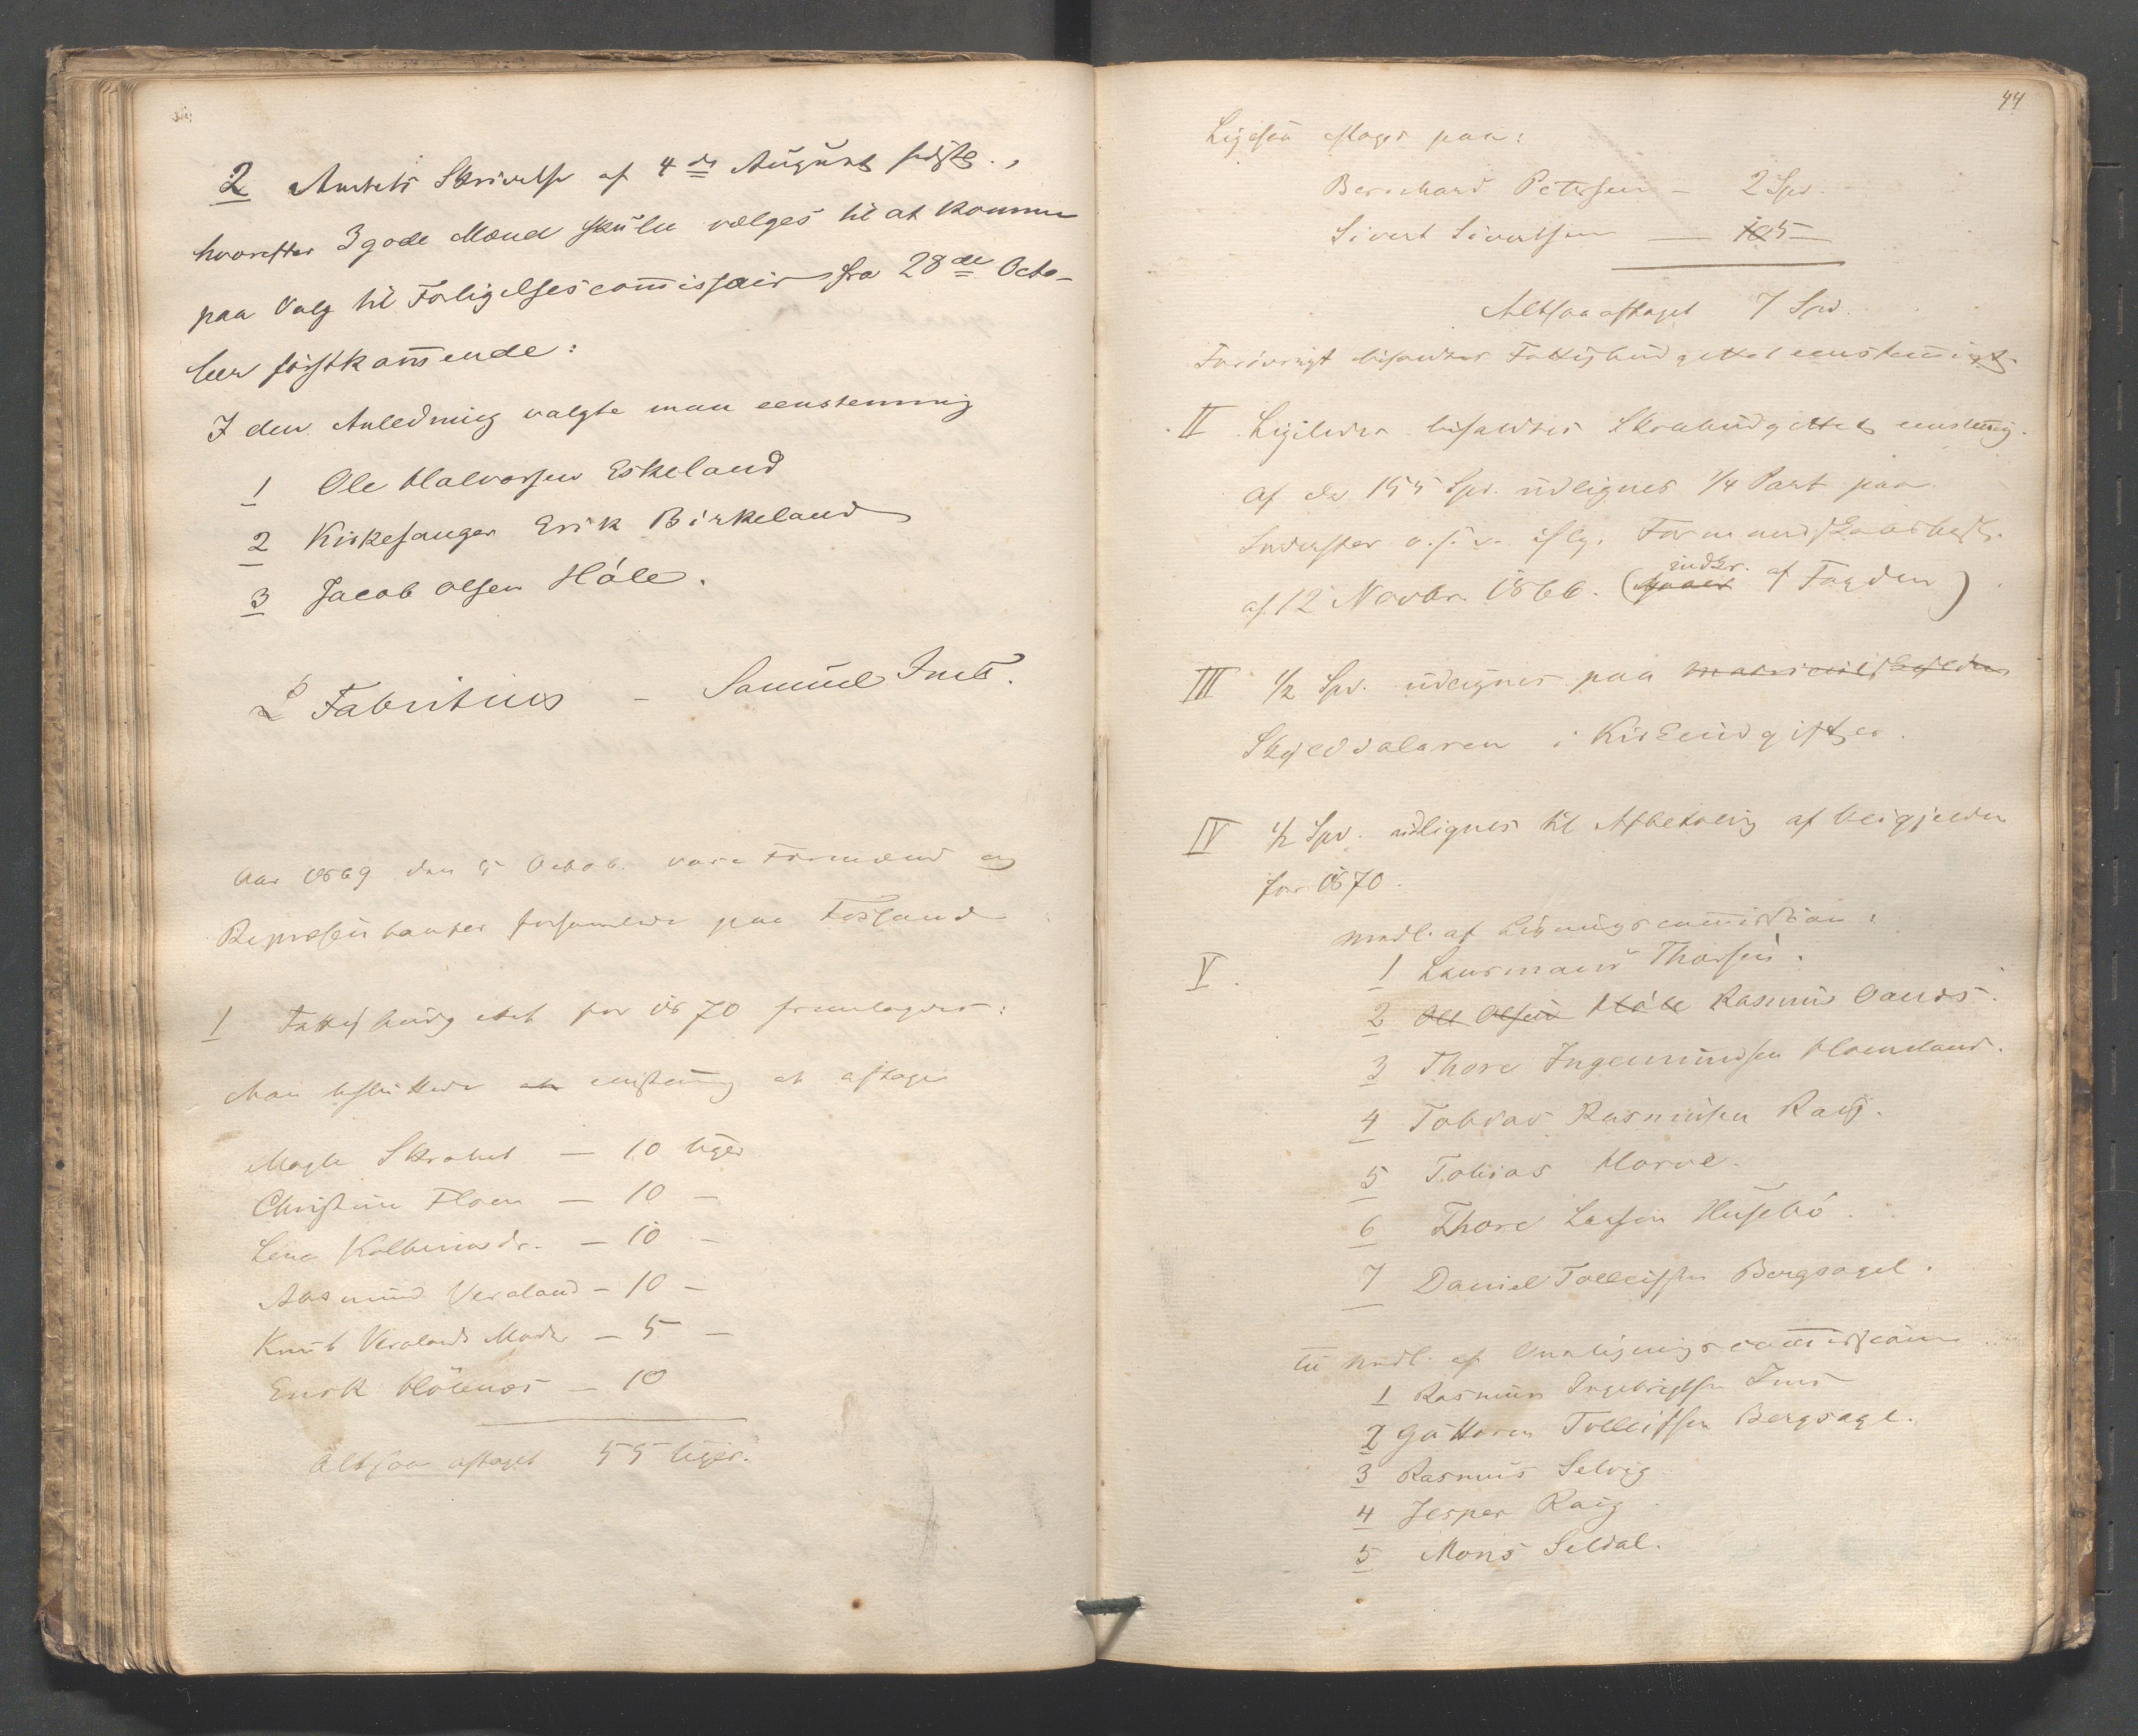 2 Amtets Skrivelse af 4de August sidstl.,
hvorefter 3 gode Mænd skulle vælges til at komme
paa Valg til Forligelsescommissair fra 28de Octo-
ber førstkommende:
I den Anledning valgte man eenstemmig
1 Ole Halvorsen Eskeland
2 Kirkesanger Erik Birkeland
3 Jacob Olsen Håle.
L Fabritius - Samuel Ims.
Aar 1869 den 5 Octob. vare Formænd og
Repræsentanter forsamlede paa Fosland
1 Fattigbudgettet for 1870 fremlagdes:
Man besluttede at eenstemmig at aftage
Magla Skrabet — 10 Uger
Christine Floen — 10 —
Lena Kolbensdr. — 10 —
Aasmund Veraland — 10 —
Knut Veralands Moder — 5 —
Enok Hölenæs — 10
Altsaa aftaget 55 Uger.
44
Ligesaa aftoges paa:
Bernhard Petersen — 2 Spd.
Sivert Sivertsen — 5 —
Altsaa aftaget 7 Spd.
Forövrigt bifaldtes Fattigbudgettet eenstemmigt.
II Ligeledes bifaldtes Skolebudgettet eenstemmig.
Af de 155 Spd. udlignes 1/4 Part paa
Inderster o.s.v. ifлg. Formandskabsbesl.
af 12 Novbr. 1866. (indkr. af Fogden)
III 1/2 Spd. udlignes paa Matriculskylden
Skylddaleren i Kirkeudgifter.
IV 1/2 Spd. udlignes til Afbetaling af Veigjelden
for 1870.
V. Medl. af Ligningscommission:
1 Lensmand Thorsen.
2 Ole Olsen Håle Rasmus Oands.
3 Thore Ingemundsen Homeland.
4 Tobias Rasmusen Raug.
5 Tobias Horve.
6 Thore Larsen Husebö.
7 Daniel Tolleifsen Bergsagel.
Til Medl. af Omligningscommission
1 Rasmus Ingebrigtsen Ims
2 Guttorm Tolleifsen Bergsagel.
3 Rasmus Selvig
4 Jesper Raug
5 Mons Seldal.